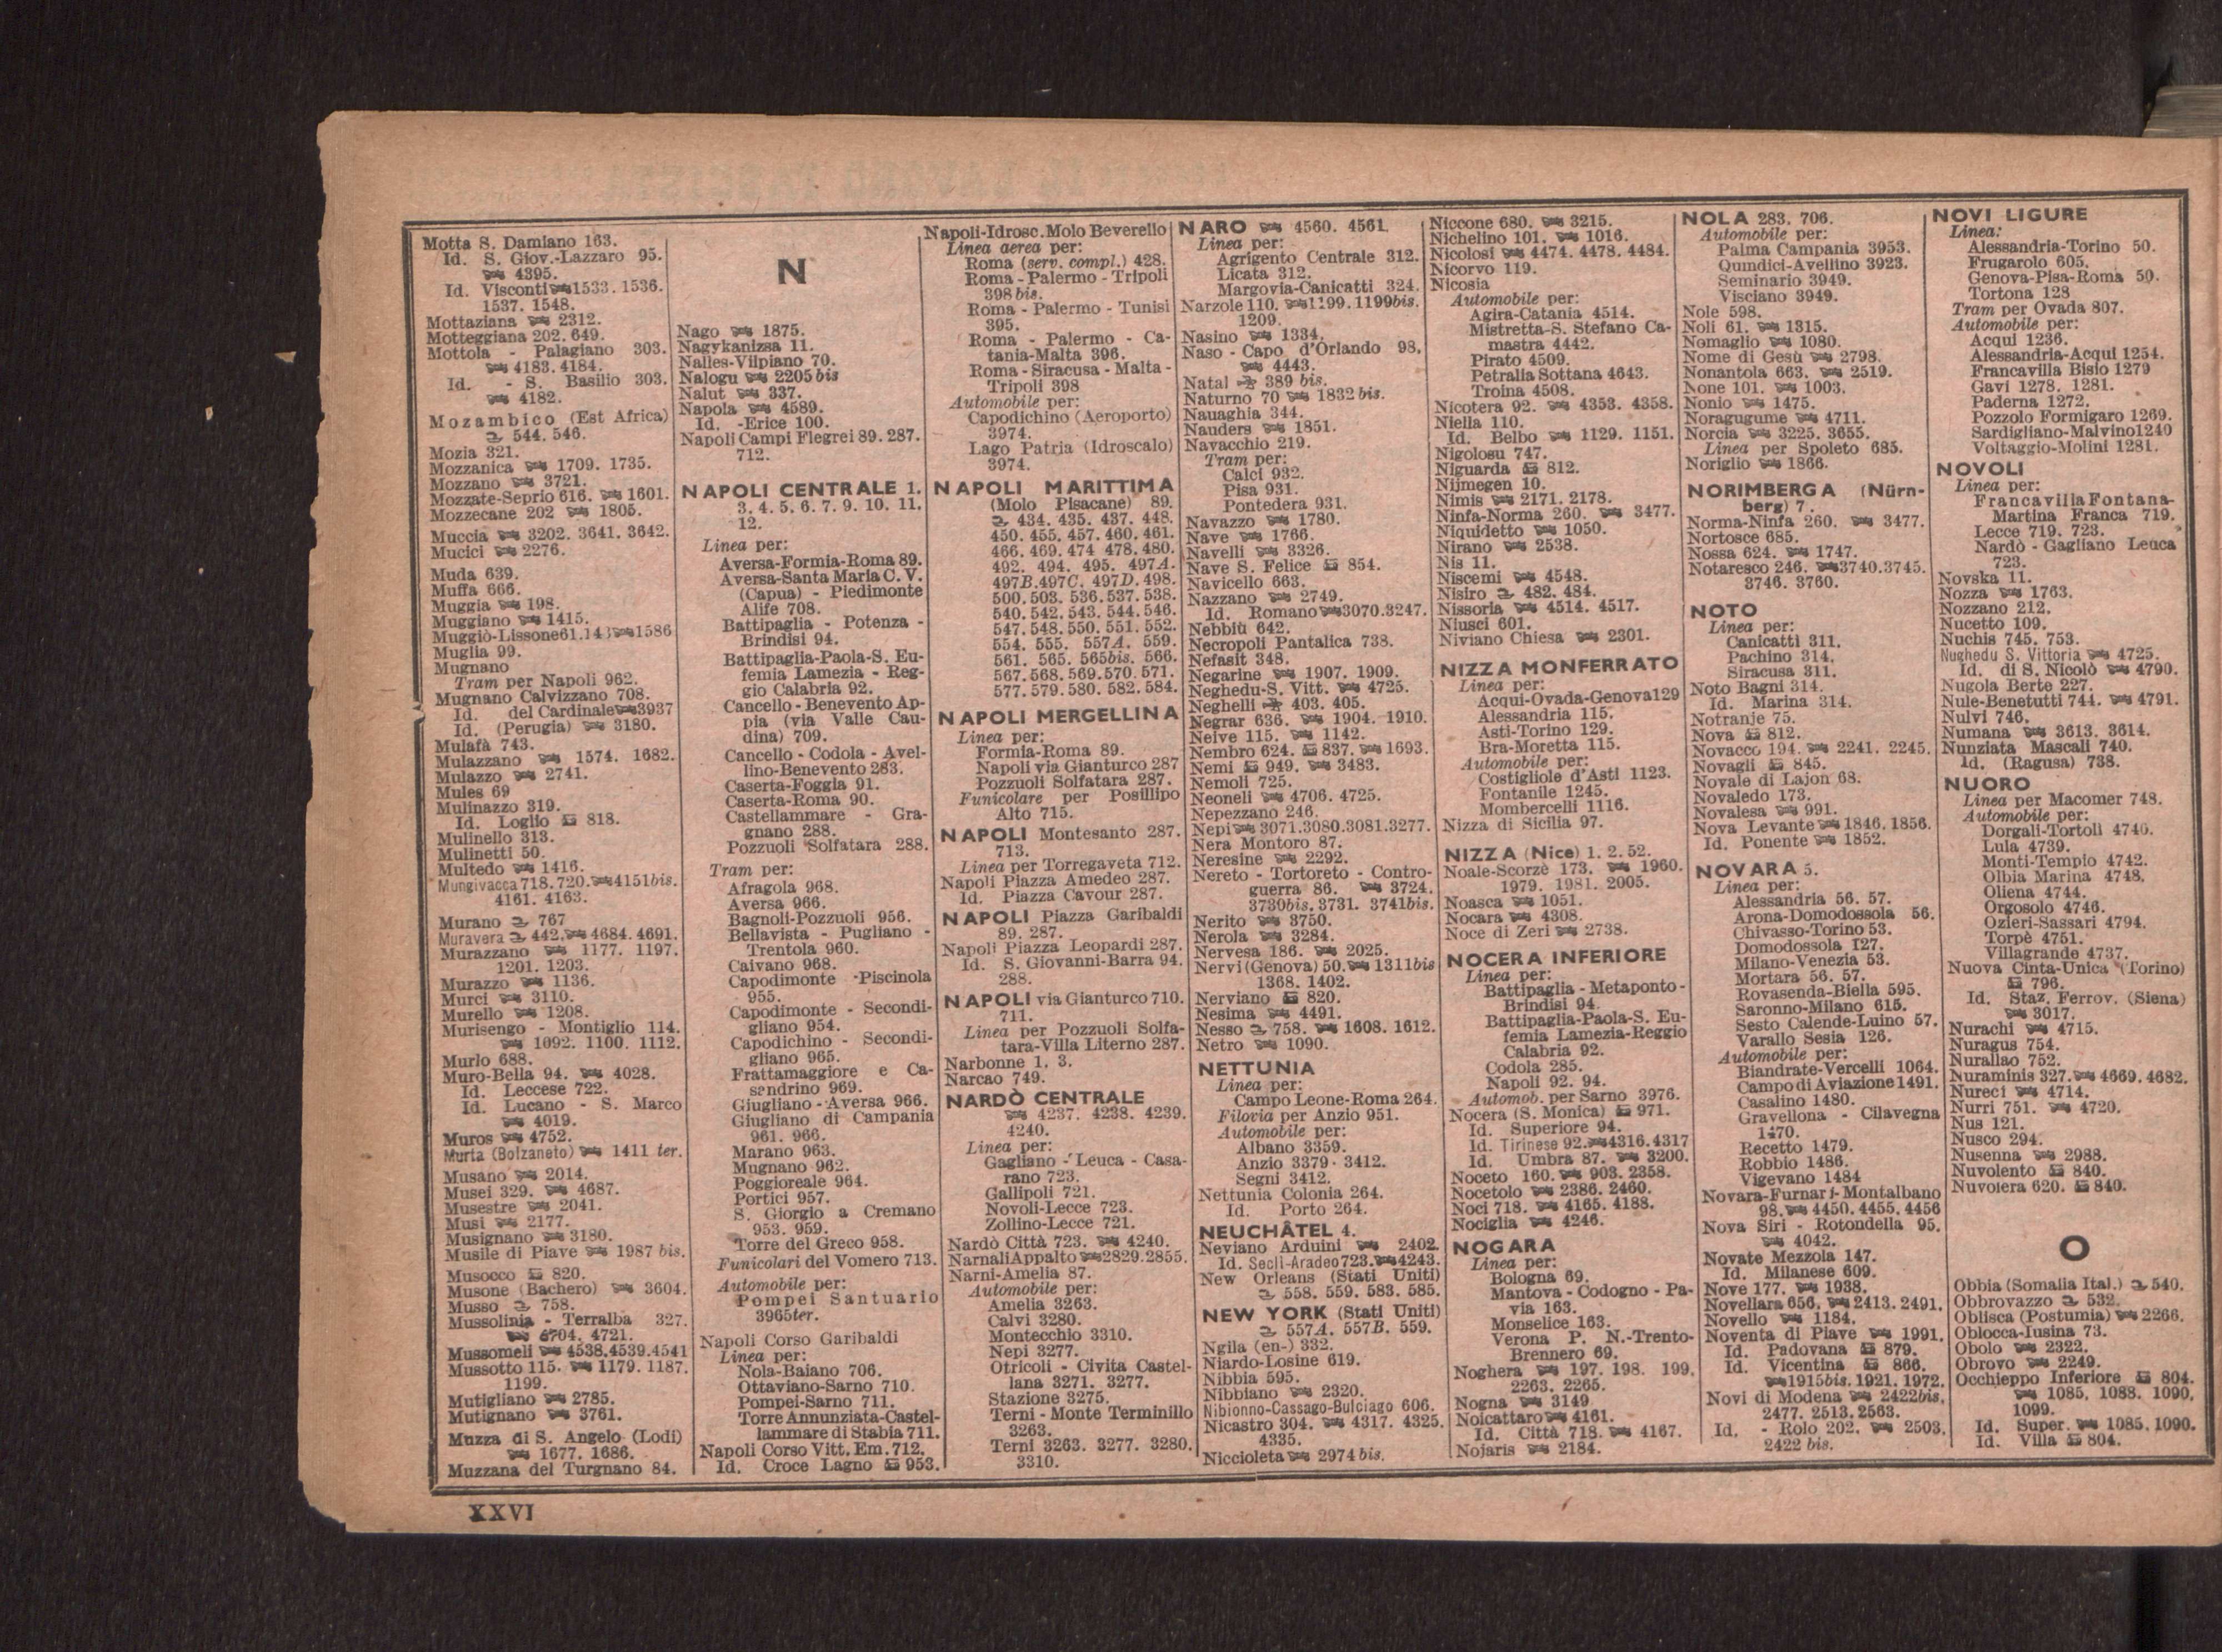 Motta S. Damiano 163.
Id. S. Giov.-Lazzaro 95.
4395.
Id. Visconti 1533. 1536.
1537. 1548.
Mottaziana 2312.
Motteggiana 202. 649.
Mottola - Palagiano 303.
4183. 4184.
Id. - S. Basilio 303.
4182.
Mozambico (Est Africa)
544. 546.
Mozia 321.
Mozzanica 1709. 1735.
Mozzano 3721.
Mozzate-Seprio 616. 1601.
Mozzecane 202 1805.
Muccia 3202. 3641. 3642.
Mucici 2276.
Muda 639.
Muffa 666.
Muggia 198.
Muggiano 1415.
Muggiò-Lissone 61.143 1586
Muglia 99.
Mugnano
Tram per Napoli 962.
Mugnano Calvizzano 708.
Id. del Cardinale 3937
Id. (Perugia) 3180.
Mulafà 743.
Mulazzano 1574. 1682.
Mulazzo 2741.
Mules 69
Mulinazzo 319.
Id. Loglio 818.
Mulinello 313.
Mulinetti 50.
Multedo 1416.
Mungivacca 718. 720. 4151bis.
4161. 4163.
Murano 767
Muravera 442. 4684. 4691.
Murazzano 1177. 1197.
1201. 1203.
Murazzo 1136.
Murci 3110.
Murello 1208.
Murisengo - Montiglio 114.
1092. 1100. 1112.
Murlo 688.
Muro-Bella 94. 4028.
Id. Leccese 722.
Id. Lucano - S. Marco
4019.
Muros 4752.
Murta (Bolzaneto) 1411 ter.
Musano 2014.
Musei 329. 4687.
Musestre 2041.
Musi 2177.
Musignano 3180.
Musile di Piave 1987 bis.
Musocco 820.
Musone (Bachero) 3604.
Musso 758.
Mussolinia - Terralba 327.
4704. 4721.
Mussomeli 4538.4539.4541
Mussotto 115. 1179. 1187.
1199.
Mutigliano 2785.
Mutignano 3761.
Muzza di S. Angelo (Lodi)
1677. 1686.
Muzzana del Turgnano 84.
N
Nago 1875.
Nagykanizsa 11.
Nalles-Vilpiano 70.
Nalogu 2205 bis
Nalut 337.
Napola 4589.
Id. -Erice 100.
Napoli Campi Flegrei 89. 287.
712.
NAPOLI CENTRALE 1.
3. 4. 5. 6. 7. 9. 10. 11.
12.
Linea per:
Aversa-Formia-Roma 89.
Aversa-Santa Maria C. V.
(Capua) - Piedimonte
Alife 708.
Battipaglia - Potenza -
Brindisi 94.
Battipaglia-Paola-S. Eu-
femia Lamezia - Reg-
gio Calabria 92.
Cancello - Benevento Ap-
pia (via Valle Cau-
dina) 709.
Cancello - Codola - Avel-
lino-Benevento 283.
Caserta-Foggia 91.
Caserta-Roma 90.
Castellammare - Gra-
gnano 288.
Pozzuoli Solfatara 288.
Tram per:
Afragola 968.
Aversa 966.
Bagnoli-Pozzuoli 956.
Bellavista - Pugliano -
Trentola 960.
Caivano 968.
Capodimonte -Piscinola
955.
Capodimonte - Secondi-
gliano 954.
Capodichino - Secondi-
gliano 965.
Frattamaggiore e Ca-
sandrino 969.
Giugliano - Aversa 966.
Giugliano di Campania
961. 966.
Marano 963.
Mugnano 962.
Poggioreale 964.
Portici 957.
S. Giorgio a Cremano
953. 959.
Torre del Greco 958.
Funicolari del Vomero 713.
Automobile per:
Pompei Santuario
3965ter.
Napoli Corso Garibaldi
Linea per:
Nola-Baiano 706.
Ottaviano-Sarno 710.
Pompei-Sarno 711.
Torre Annunziata-Castel-
lammare di Stabia 711.
Napoli Corso Vitt. Em. 712.
Id. Croce Lagno 953.
Napoli-Idrosc. Molo Beverello
Linea aerea per:
Roma (serv. compl.) 428.
Roma - Palermo - Tripoli
398 bis.
Roma - Palermo - Tunisi
395.
Roma - Palermo - Ca-
tania-Malta 396.
Roma - Siracusa - Malta -
Tripoli 398
Automobile per:
Capodichino (Aeroporto)
3974.
Lago Patria (Idroscalo)
3974.
NAPOLI MARITTIMA
(Molo Pisacane) 89.
434. 435. 437. 448.
450. 455. 457. 460. 461.
466. 469. 474 478. 480.
492. 494. 495. 497A.
497B. 497C. 497D. 498.
500. 503. 536. 537. 538.
540. 542. 543. 544. 546.
547. 548. 550. 551. 552.
554. 555. 557A. 559.
561. 565. 565bis. 566.
567. 568. 569. 570. 571.
577. 579. 580. 582. 584.
NAPOLI MERGELLINA
Linea per:
Formia-Roma 89.
Napoli via Gianturco 287
Pozzuoli Solfatara 287.
Funicolare per Posillipo
Alto 715.
NAPOLI Montesanto 287.
713.
Linea per Torregaveta 712.
Napoli Piazza Amedeo 287.
Id. Piazza Cavour 287.
NAPOLI Piazza Garibaldi
89. 287.
Napoli Piazza Leopardi 287.
Id. S. Giovanni-Barra 94.
288.
NAPOLI via Gianturco 710.
711.
Linea per Pozzuoli Solfa-
tara-Villa Literno 287.
Narbonne 1. 3.
Narcao 749.
NARDÒ CENTRALE
4237. 4238. 4239.
4240.
Linea per:
Gagliano - Leuca - Casa-
rano 723.
Gallipoli 721.
Novoli-Lecce 723.
Zollino-Lecce 721.
Nardò Città 723. 4240.
Narnali Appalto 2829. 2855.
Narni-Amelia 87.
Automobile per:
Amelia 3263.
Calvi 3280.
Montecchio 3310.
Nepi 3277.
Otricoli - Civita Castel-
lana 3271. 3277.
Stazione 3275.
Terni - Monte Terminillo
3263.
Terni 3263. 3277. 3280.
3310.
NARO 4560. 4561.
Linea per:
Agrigento Centrale 312.
Licata 312.
Margovia-Canicatti 324.
Narzole 110. 1199. 1199bis.
1209.
Nasino 1334.
Naso - Capo d'Orlando 98.
4443.
Natal 389 bis.
Naturno 70 1832 bis.
Nauaghia 344.
Nauders 1851.
Navacchio 219.
Tram per:
Calci 932.
Pisa 931.
Pontedera 931.
Navazzo 1780.
Nave 1766.
Navelli 3326.
Nave S. Felice 854.
Navicello 663.
Nazzano 2749.
Id. Romano 3070. 3247.
Nebbiù 642.
Necropoli Pantalica 738.
Nefasit 348.
Negarine 1907. 1909.
Neghedu-S. Vitt. 4725.
Neghelli 403. 405.
Negrar 636. 1904. 1910.
Neive 115. 1142.
Nembro 624. 837. 1693.
Nemi 949. 3483.
Nemoli 725.
Neoneli 4706. 4725.
Nepezzano 246.
Nepi 3071.3080.3081.3277.
Nera Montoro 87.
Neresine 2292.
Nereto - Tortoreto - Contro-
guerra 86. 3724.
3730bis. 3731. 3741bis.
Nerito 3750.
Nerola 3284.
Nervesa 186. 2025.
Nervi (Genova) 50. 1311bis
1368. 1402.
Nerviano 820.
Nesima 4491.
Nesso 758. 1608. 1612.
Netro 1090.
NETTUNIA
Linea per:
Campo Leone-Roma 264.
Filovia per Anzio 951.
Automobile per:
Albano 3359.
Anzio 3379 - 3412.
Segni 3412.
Nettunia Colonia 264.
Id. Porto 264.
NEUCHÂTEL 4.
Neviano Arduini 2402.
Id. Secli-Aradeo 723. 4243.
New Orleans (Stati Uniti)
558. 559. 583. 585.
NEW YORK (Stati Uniti)
557A. 557B. 559.
Ngila (en-) 332.
Niardo-Losine 619.
Nibbia 595.
Nibbiano 2320.
Nibionno-Cassago-Bulciago 606.
Nicastro 304. 4317. 4325.
4335.
Niccioleta 2974 bis.
Niccone 680. 3215.
Nichelino 101. 1016.
Nicolosi 4474. 4478. 4484.
Nicorvo 119.
Nicosia
Automobile per:
Agira-Catania 4514.
Mistretta-S. Stefano Ca-
mastra 4442.
Pirato 4509.
Petralia Sottana 4643.
Troina 4508.
Nicotera 92. 4353. 4358.
Niella 110.
Id. Belbo 1129. 1151.
Nigolosu 747.
Niguarda 812.
Nijmegen 10.
Nimis 2171. 2178.
Ninfa-Norma 260. 3477.
Niquidetto 1050.
Nirano 2538.
Nis 11.
Niscemi 4548.
Nisiro 482. 484.
Nissoria 4514. 4517.
Niusci 601.
Niviano Chiesa 2301.
NIZZA MONFERRATO
Linea per:
Acqui-Ovada-Genova 129
Alessandria 115.
Asti-Torino 129.
Bra-Moretta 115.
Automobile per:
Costigliole d'Asti 1123.
Fontanile 1245.
Mombercelli 1116.
Nizza di Sicilia 97.
NIZZA (Nice) 1. 2. 52.
Noale-Scorzè 173. 1960.
1979. 1981. 2005.
Noasca 1051.
Nocara 4308.
Noce di Zeri 2738.
NOCERA INFERIORE
Linea per:
Battipaglia - Metaponto -
Brindisi 94.
Battipaglia-Paola-S. Eu-
femia Lamezia-Reggio
Calabria 92.
Codola 285.
Napoli 92. 94.
Automob. per Sarno 3976.
Nocera (S. Monica) 971.
Id. Superiore 94.
Id. Tirinese 92. 4316. 4317
Id. Umbra 87. 3200.
Noceto 160. 903. 2358.
Nocetolo 2386. 2460.
Noci 718. 4165. 4188.
Nociglia 4246.
NOGARA
Linea per:
Bologna 69.
Mantova - Codogno - Pa-
via 163.
Monselice 163.
Verona P. N.-Trento-
Brennero 69.
Noghera 197. 198. 199.
2263. 2265.
Nogna 3149.
Noicattaro 4161.
Id. Città 718. 4167.
Nojaris 2184.
NOLA 283. 706.
Automobile per:
Palma Campania 3953.
Quindici-Avellino 3923.
Seminario 3949.
Visciano 3949.
Nole 598.
Noli 61. 1315.
Nomaglio 1080.
Nome di Gesù 2798.
Nonantola 663. 2519.
None 101. 1003.
Nonio 1475.
Noragugume 4711.
Norcia 3225. 3655.
Linea per Spoleto 685.
Noriglio 1866.
NORIMBERGA (Nürn-
berg) 7.
Norma-Ninfa 260. 3477.
Nortosce 685.
Nossa 624. 1747.
Notaresco 246. 3740. 3745.
3746. 3760.
NOTO
Linea per:
Canicatti 311.
Pachino 314.
Siracusa 311.
Noto Bagni 314.
Id. Marina 314.
Notranje 75.
Nova 812.
Novacco 194. 2241. 2245.
Novagli 845.
Novale di Lajon 68.
Novaledo 173.
Novalesa 991.
Nova Levante 1846. 1856.
Id. Ponente 1852.
NOVARA 5.
Linea per:
Alessandria 56. 57.
Arona-Domodossola 56.
Chivasso-Torino 53.
Domodossola 127.
Milano-Venezia 53.
Mortara 56. 57.
Rovasenda-Biella 595.
Saronno-Milano 615.
Sesto Calende-Luino 57.
Varallo Sesia 126.
Automobile per:
Biandrate-Vercelli 1064.
Campo di Aviazione 1491.
Casalino 1480.
Gravellona - Cilavegna
1470.
Recetto 1479.
Robbio 1486.
Vigevano 1484
Novara-Furnari-Montalbano
98. 4450. 4455. 4456
Nova Siri - Rotondella 95.
4042.
Novate Mezzola 147.
Id. Milanese 609.
Nove 177. 1938.
Novellara 656. 2413. 2491.
Novello 1184.
Noventa di Piave 1991.
Id. Padovana 879.
Id. Vicentina 866.
1915bis. 1921. 1972.
Novi di Modena 2422bis.
2477. 2513. 2563.
Id. - Rolo 202. 2503.
2422 bis.
NOVI LIGURE
Linea:
Alessandria-Torino 50.
Frugarolo 605.
Genova-Pisa-Roma 50.
Tortona 128
Tram per Ovada 807.
Automobile per:
Acqui 1236.
Alessandria-Acqui 1254.
Francavilla Bisio 1279
Gavi 1278. 1281.
Paderna 1272.
Pozzolo Formigaro 1269.
Sardigliano-Malvino 1240
Voltaggio-Molini 1281.
NOVOLI
Linea per:
Francavilla Fontana-
Martina Franca 719.
Lecce 719. 723.
Nardò - Gagliano Leuca
723.
Novska 11.
Nozza 1763.
Nozzano 212.
Nucetto 109.
Nuchis 745. 753.
Nughedu S. Vittoria 4725.
Id. di S. Nicolò 4790.
Nugola Berte 227.
Nule-Benetutti 744. 4791.
Nulvi 746.
Numana 3613. 3614.
Nunziata Mascali 740.
Id. (Ragusa) 738.
NUORO
Linea per Macomer 748.
Automobile per:
Dorgali-Tortoli 4740.
Lula 4739.
Monti-Tempio 4742.
Olbia Marina 4748.
Oliena 4744.
Orgosolo 4746.
Ozieri-Sassari 4794.
Torpè 4751.
Villagrande 4737.
Nuova Cinta-Unica (Torino)
796.
Id. Staz. Ferrov. (Siena)
3017.
Nurachi 4715.
Nuragus 754.
Nurallao 752.
Nuraminis 327. 4669. 4682.
Nureci 4714.
Nurri 751. 4720.
Nus 121.
Nusco 294.
Nusenna 2988.
Nuvolento 840.
Nuvolera 620. 840.
O
Obbia (Somalia Ital.) 540.
Obbrovazzo 532.
Oblisca (Postumia) 2266.
Oblocca-Iusina 73.
Obolo 2322.
Obrovo 2249.
Occhieppo Inferiore 804.
1085. 1088. 1090.
1099.
Id. Super. 1085. 1090.
Id. Villa 804.
XXVI